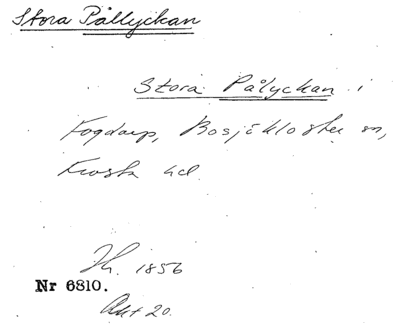 Stora Pållyckan
Stora Pålyckan i
Fogdarp, Bosjökloster sn,
Frosta hd.
Jh. 1856
Nr 6810.
Akt 20.